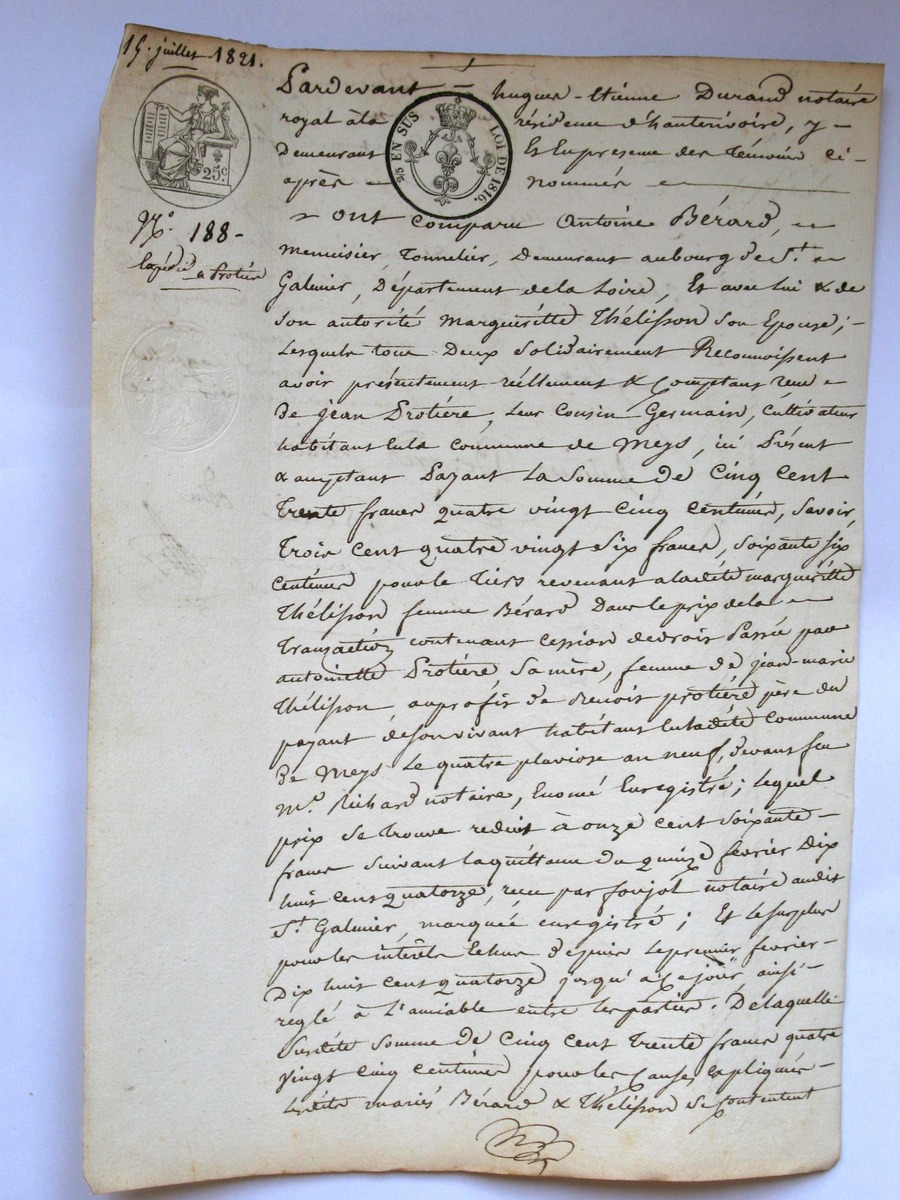 15. juillet 1821.
25ᶜ
N.° 188-
Expédié a Protière
2/5 EN SUS LOI DE 1816.
Pardevant - hugues-Etienne Durand notaire
royal à la résidence d'hauterivoire, y-
Demeurant Et En presence des Témoins ci-
après - nommés -
ont comparu Antoine Bérard,
Menuisier, Tonnelier, Demeurant au bourg de St.
Galmier, Département de la Loire, Et avec lui & de
Son autorité Marguéritte Thélisson Son Epouse;
Lesquels tous Deux Solidairement Reconnoissent
avoir présentement réellement & Comptant reçu
De jean Protière, Leur Cousin Germain, Cultivateur
habitant En la Commune de Meys, ici Présent
& acceptant Payant La Somme De Cinq Cent
Trente francs quatre vingt Cinq Centimes, Savoir
Trois Cent quatre vingt Six francs, Soixante Six
Centimes pour le Tiers revenant a ladite marguéritte
Thélisson femme Bérard Dans le prix de la
Transaction contenant cession de droits Passée par
antoinette Protière, Sa mère, femme De jean-marie
Thélisson au profit De Benoit protière père du
payant de son vivant habitant En la dite Commune
De Meys Le quatre pluviose an neuf, devant feu
Me. Richard notaire, Enoncé Enregistré; Lequel
prix Se Trouve reduit à onze Cent Soixante-
francs Suivant la quittance du quinze février Dix
huit Cent quatorze, reçu par foujol notaire audit
St. Galmier, marquée enregistré; Et Le Surplus
pour les intérêts Echus Depuis Le premier février-
Dix huit Cent quatorze jusqu'a Ce jour ainsi-
réglé à l'amiable entre Les parties. De laquelle
Susdite Somme de Cinq Cent Trente francs quatre
vingt Cinq Centimes pour les Causes Expliquées-
Lesdits mariés Bérard & Thélisson Se Contentent